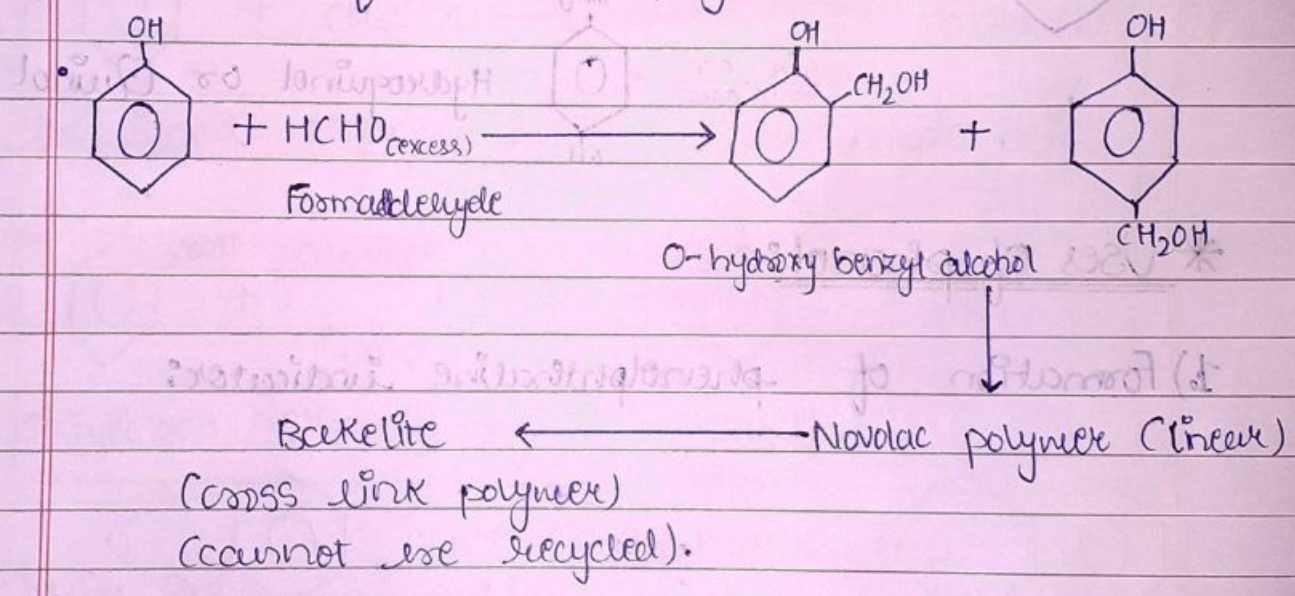 OH
OH
CH₂OH
OH
+ HCHO(excess)
+
Formaldehyde
CH₂OH
O-hydroxy benzyl alcohol
Bakelite
Novolac polymer (linear)
(cross link polymer)
(cannot be recycled).